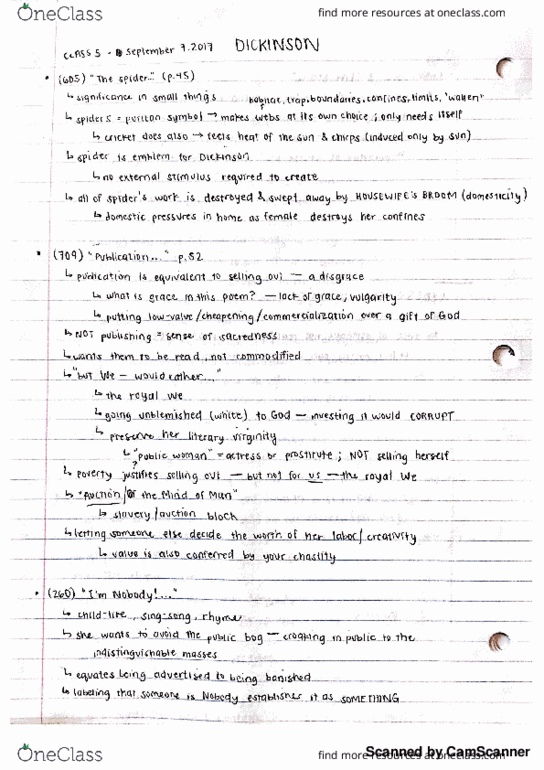 OneClass
find more resources at oneclass.com
CLASS 5 - September 7.2017 DICKINSON
• (605) "The spider.." (p.45)
↳ significance in small things habitat, trap, boundaries, confines, limits, "walled"
↳ spiders = puritan symbol → makes webs at its own choice ; only needs itself
↳ cricket does also → feels heat of the sun & chirps (induced only by sun)
↳ spider is emblem for DICKINSON
↳ no external stimulus required to create
↳ all of spider's work is destroyed & swept away by HOUSEWIFE'S BROOM (domesticity)
↳ domestic pressures in home as female destroys her confines
• (709) "Publication..." p.52
↳ publication is equivalent to selling out — a disgrace
↳ what is grace in this poem? — lack of grace, vulgarity
↳ putting low-value/cheapening/commercialization over a gift of God
↳ NOT publishing = sense of sacredness
↳ wants them to be read, not commodified
↳ "but We — would rather..."
↳ the royal We
↳ going unblemished (white) to God — investing it would CORRUPT
↳ preserve her literary virginity
↳ "public woman" = actress or prostitute ; NOT selling herself
?
↳ poverty justifies selling out — but not for us — the royal We
↳ "Auction/Of the Mind of Man"
↳ slavery/auction block
↳ letting someone else decide the worth of her labor/creativity
↳ value is also conferred by your chastity
• (260) "I'm Nobody!..."
↳ child-like, sing-song, rhyme
↳ she wants to avoid the public bog — croaking in public to the
indistinguichable masses
↳ equates being advertised to being banished
↳ labeling that someone is Nobody establishes it as SOMETHING
OneClass
find more resources at oneclass.com
Scanned by CamScanner